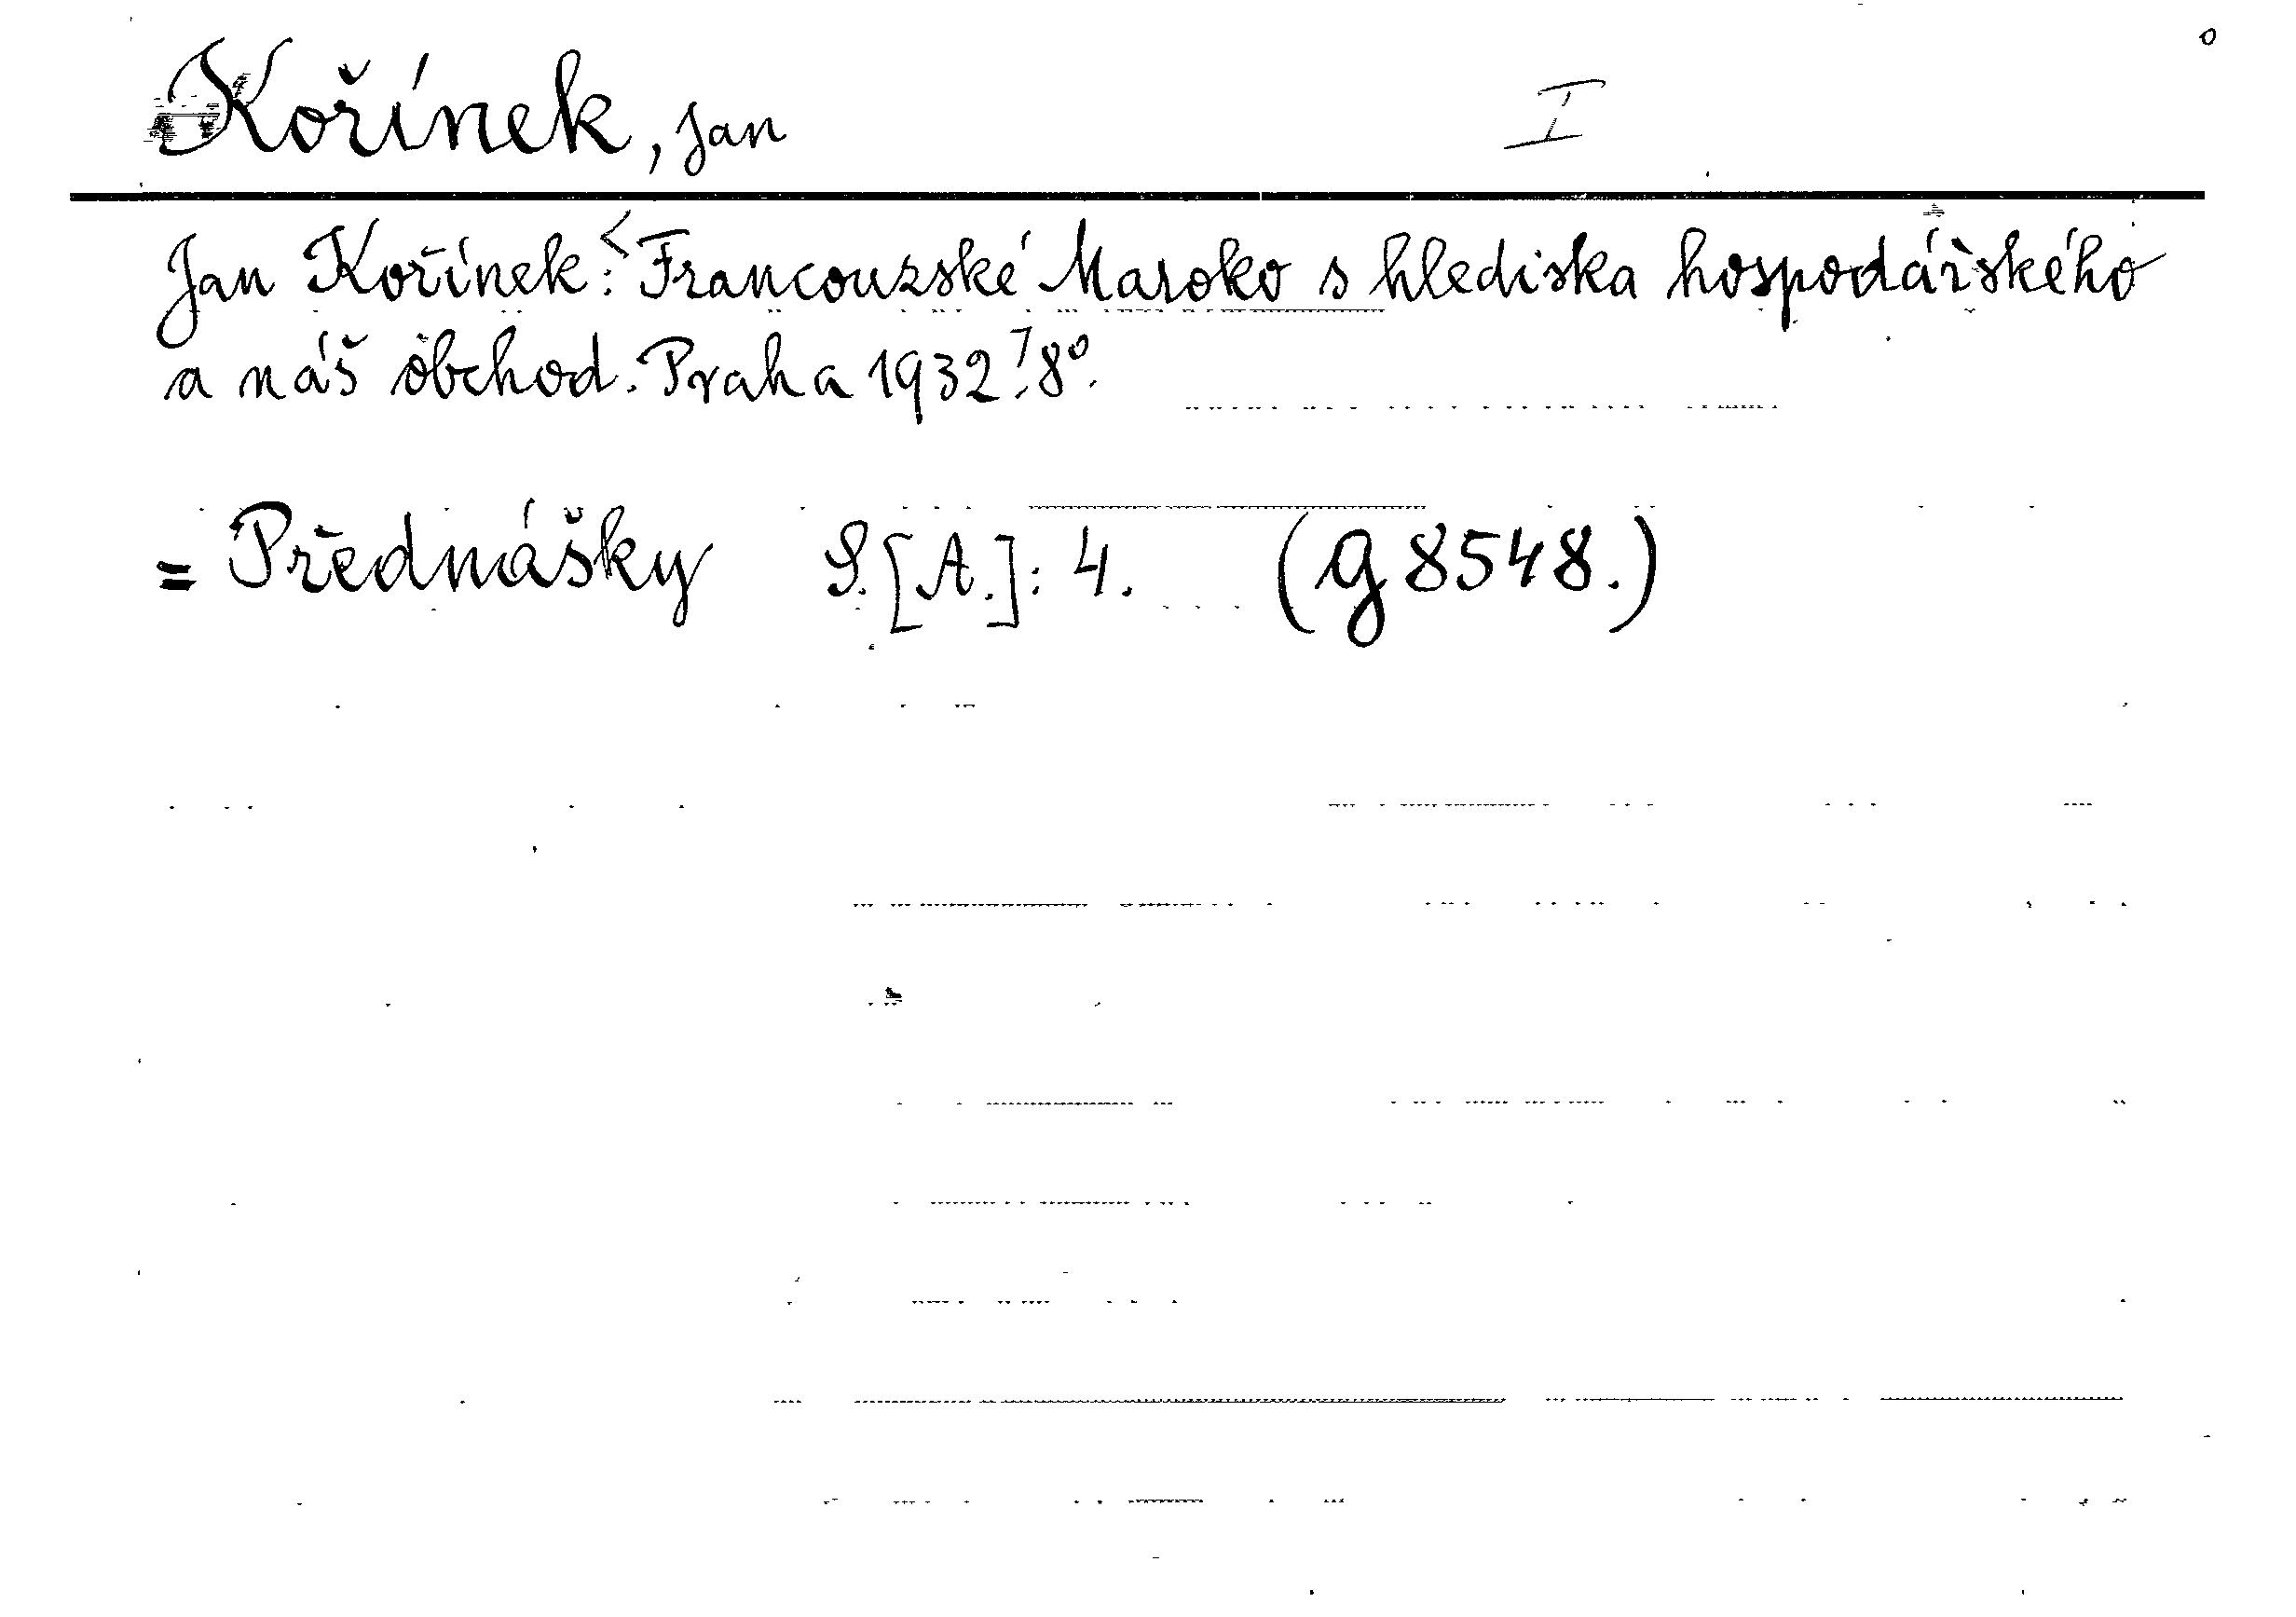 Kořínek, Jan I
Jan Kořínek: Francouzské Maroko s hlediska hospodářského
a náš obchod. Praha 1932. 8°.
= Přednášky S.[A.]: 4. (g 8548.)